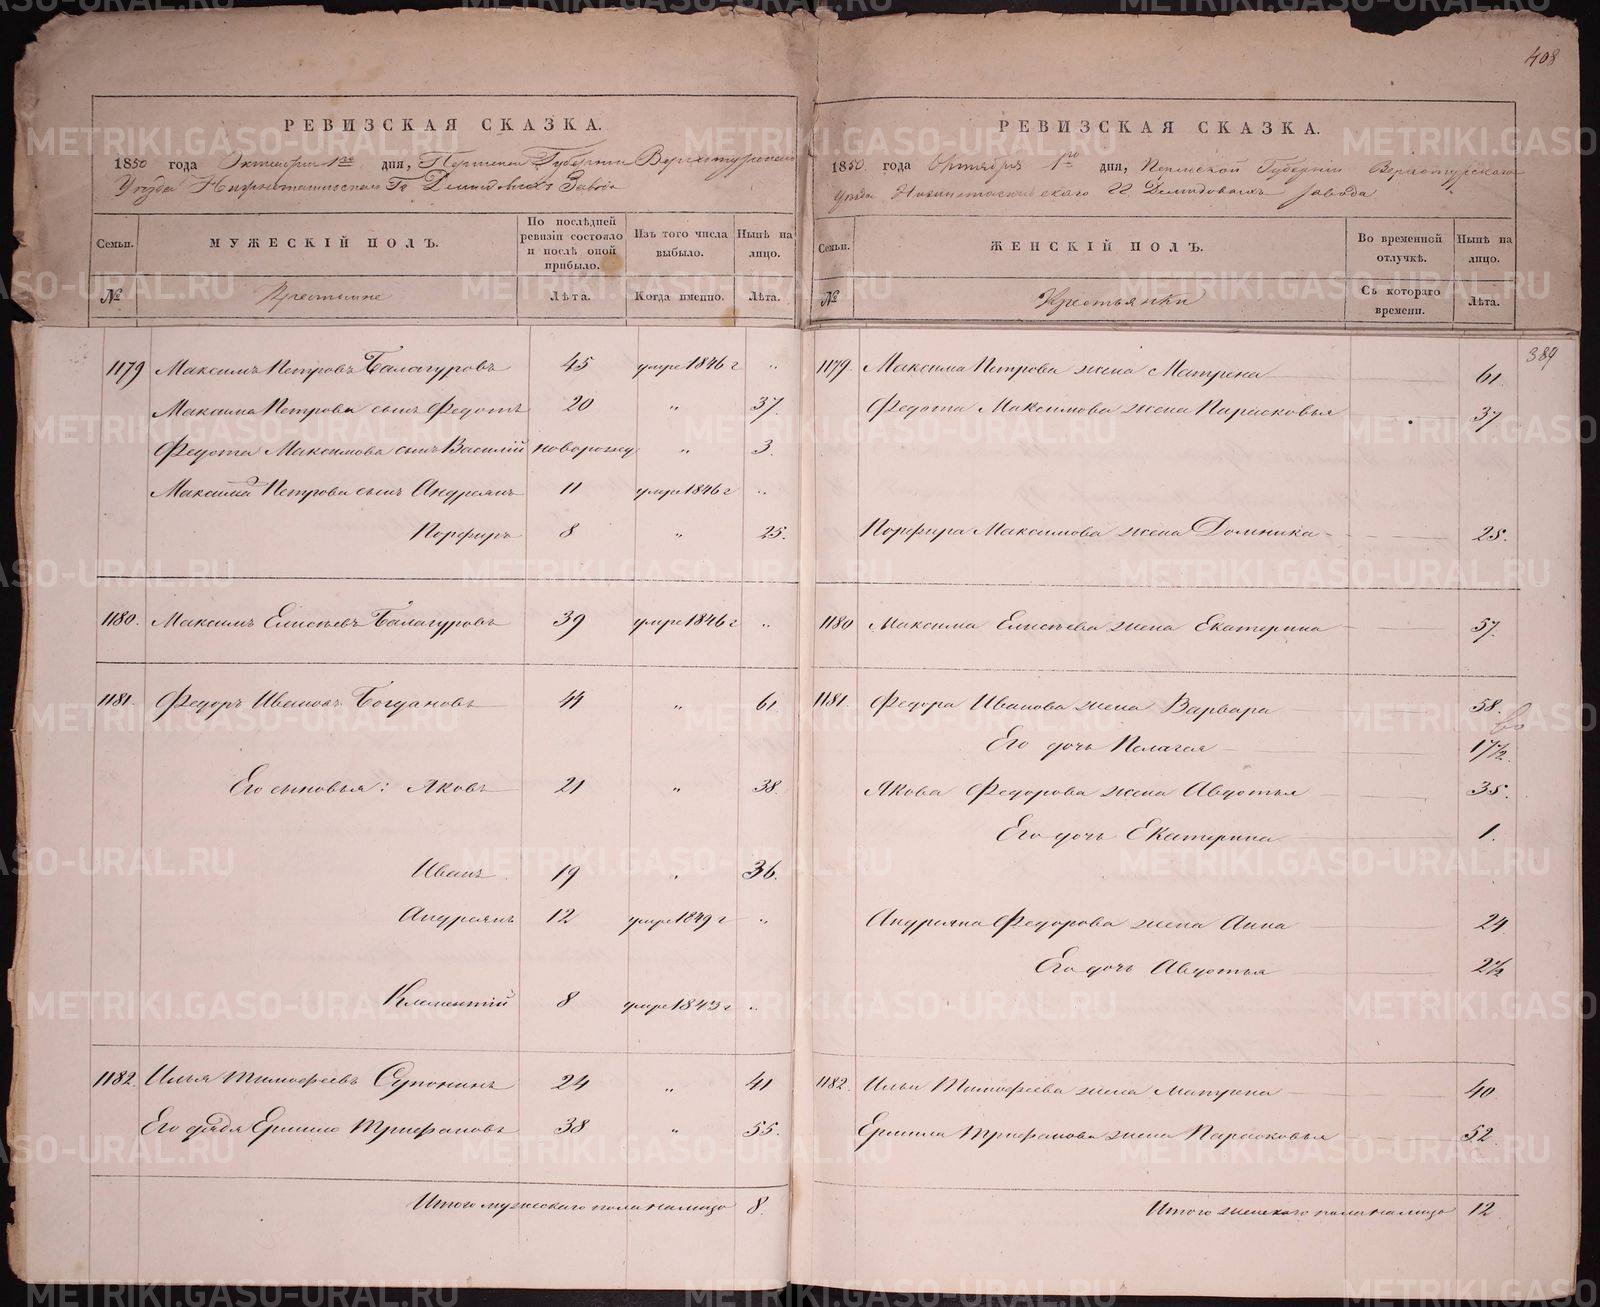 408
РЕВИЗСКАЯ СКАЗКА.
1850 года Октября 1го дня, Пермской Губернии Верхотурскаго
Уезда Нижнетагильскаго Гг Демидовыхъ Завода
Семьи. МУЖЕСКІЙ ПОЛЪ. По послѣдней ревизіи состояло и послѣ оной прибыло. Изъ того числа выбыло. Нынѣ на лицо.
№ Крестьяне Лѣта. Когда именно. Лѣта.
1179 Максимъ Петровъ Балагуровъ 45 умре 1846 г "
Максима Петрова сынъ Федотъ 20 " 37.
Федота Максимова сынъ Василій новорожд " 3.
Максима Петрова сынъ Андреянъ 11 умре 1846 г "
Порфиръ 8 " 25.
1180. Максимъ Елисѣевъ Балагуровъ 39 умре 1846 г "
1181. Федоръ Ивановъ Богдановъ 44 " 61.
Его сыновья: Яковъ 21 " 38.
Иванъ 19 " 36.
Андреянъ 12 умре 1849 г "
Клементій 8 умре 1843 г "
1182. Илья Тимофеевъ Супонинъ 24 " 41
Его дядя Ермило Трифановъ 38 " 55.
Итого мужескаго пола налицо 8.
РЕВИЗСКАЯ СКАЗКА.
1850. года Октября 1го дня, Пермской Губерніи Верхотурскаго
Уезда Нижнетагильскаго гг Демидовыхъ завода
Семьи. ЖЕНСКІЙ ПОЛЪ. Во временной отлучкѣ. Нынѣ на лицо.
№ Крестьянки Съ котораго времени. Лѣта.
389
1179. Максима Петрова жена Матрена 61.
Федота Максимова жена Парасковья 37
Порфира Максимова жена Домника 28.
1180 Максима Елисѣева жена Екатерина 57.
1181. Федора Иванова жена Варвара 58.
Его дочь Пелагея 17½
Якова Федорова жена Авдотья 35.
Его дочь Екатерина 1.
Андреяна Федорова жена Анна 24
Его дочь Авдотья 2½
1182. Ильи Тимофеева жена Матрена 40
Ермила Трифанова жена Парасковья 52
Итого женскаго пола налицо 12
METRIKI.GASO-URAL.RU